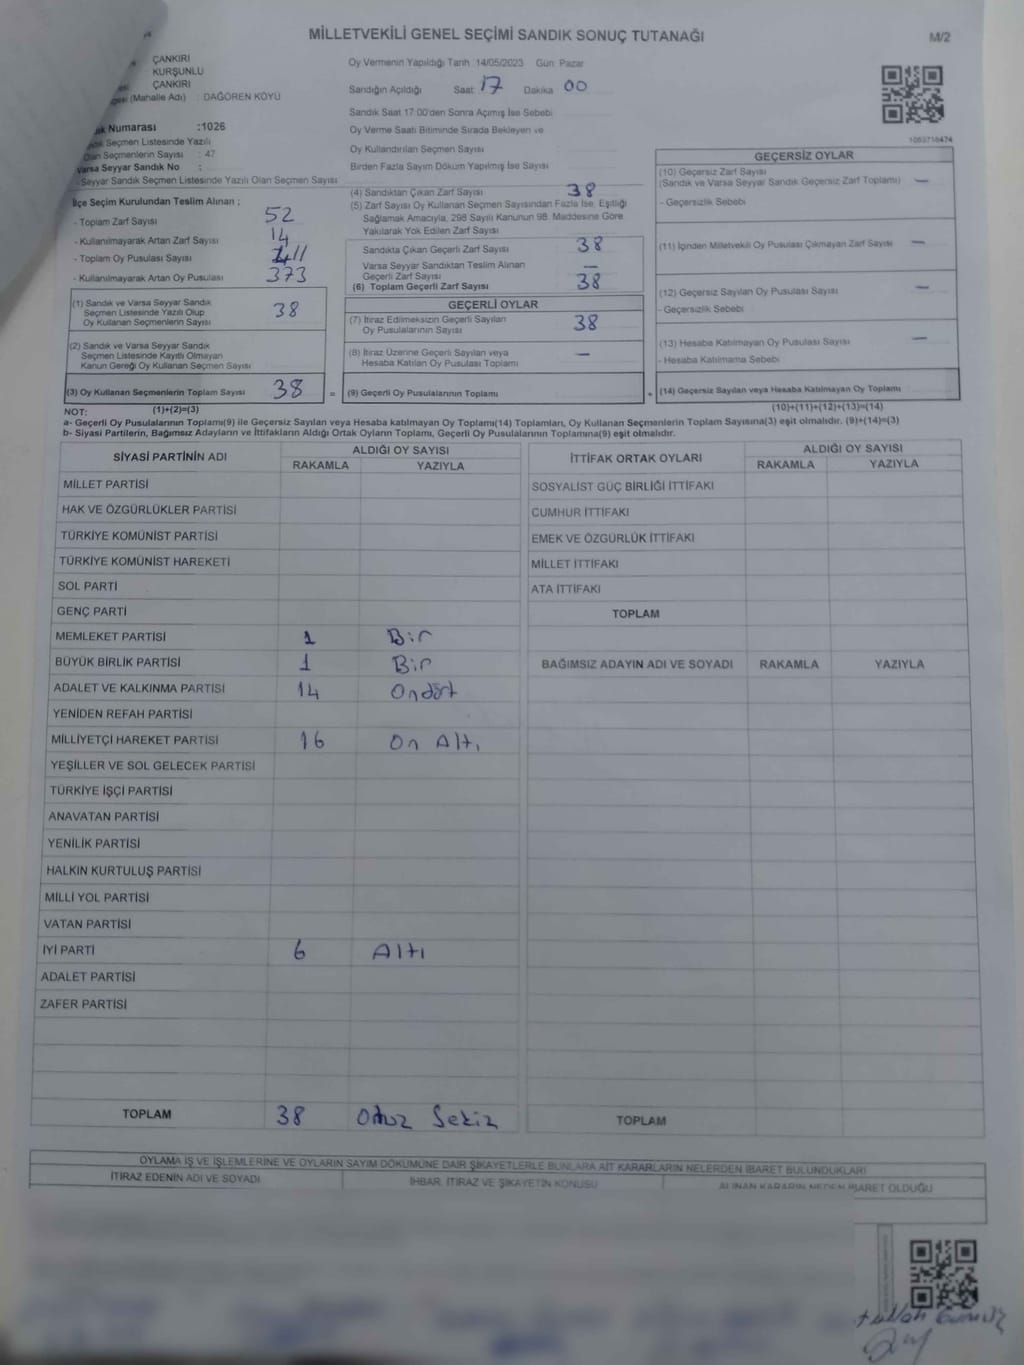 MİLLETVEKİLİ GENEL SEÇİMİ SANDIK SONUÇ TUTANAĞI
M/2
ÇANKIRI
KURŞUNLU
ÇANKIRI
(Mahalle Adı) : DAĞÖREN KÖYÜ
Numarası :1026
Seçmen Listesinde Yazılı
Olan Seçmenlerin Sayısı : 47
Varsa Seyyar Sandık No :
Seyyar Sandık Seçmen Listesinde Yazılı Olan Seçmen Sayısı
Oy Vermenin Yapıldığı Tarih :14/05/2023 Gün: Pazar
Sandığın Açıldığı Saat 17 Dakika 00
Sandık Saat 17:00'den Sonra Açılmış İse Sebebi
Oy Verme Saati Bitiminde Sırada Bekleyen ve
Oy Kullandırılan Seçmen Sayısı
Birden Fazla Sayım Döküm Yapılmış İse Sayısı
1063716474
İlçe Seçim Kurulundan Teslim Alınan ;
- Toplam Zarf Sayısı 52
- Kullanılmayarak Artan Zarf Sayısı 14
- Toplam Oy Pusulası Sayısı
- Kullanılmayarak Artan Oy Pusulası 373
(1) Sandık ve Varsa Seyyar Sandık
Seçmen Listesinde Yazılı Olup
Oy Kullanan Seçmenlerin Sayısı 38
(2) Sandık ve Varsa Seyyar Sandık
Seçmen Listesinde Kayıtlı Olmayan
Kanun Gereği Oy Kullanan Seçmen Sayısı
(3) Oy Kullanan Seçmenlerin Toplam Sayısı 38 =
(4) Sandıktan Çıkan Zarf Sayısı 38
(5) Zarf Sayısı Oy Kullanan Seçmen Sayısından Fazla İse, Eşitliği
Sağlamak Amacıyla, 298 Sayılı Kanunun 98. Maddesine Göre
Yakılarak Yok Edilen Zarf Sayısı
Sandıkta Çıkan Geçerli Zarf Sayısı 38
Varsa Seyyar Sandıktan Teslim Alınan
Geçerli Zarf Sayısı —
(6) Toplam Geçerli Zarf Sayısı 38
GEÇERLİ OYLAR
(7) İtiraz Edilmeksizin Geçerli Sayılan
Oy Pusulalarının Sayısı 38
(8) İtiraz Üzerine Geçerli Sayılan veya
Hesaba Katılan Oy Pusulası Toplamı —
(9) Geçerli Oy Pusulalarının Toplamı +
GEÇERSİZ OYLAR
(10) Geçersiz Zarf Sayısı
(Sandık ve Varsa Seyyar Sandık Geçersiz Zarf Toplamı) —
- Geçersizlik Sebebi
(11) İçinden Milletvekili Oy Pusulası Çıkmayan Zarf Sayısı —
(12) Geçersiz Sayılan Oy Pusulası Sayısı —
- Geçersizlik Sebebi
(13) Hesaba Katılmayan Oy Pusulası Sayısı —
- Hesaba Katılmama Sebebi
(14) Geçersiz Sayılan veya Hesaba Katılmayan Oy Toplamı
NOT: (1)+(2)=(3)
(10)+(11)+(12)+(13)=(14)
a- Geçerli Oy Pusulalarının Toplamı(9) ile Geçersiz Sayılan veya Hesaba katılmayan Oy Toplamı(14) Toplamları, Oy Kullanan Seçmenlerin Toplam Sayısına(3) eşit olmalıdır. (9)+(14)=(3)
b- Siyasi Partilerin, Bağımsız Adayların ve İttifakların Aldığı Ortak Oyların Toplamı, Geçerli Oy Pusulalarının Toplamına(9) eşit olmalıdır.
SİYASİ PARTİNİN ADI
ALDIĞI OY SAYISI
RAKAMLA YAZIYLA
MİLLET PARTİSİ
HAK VE ÖZGÜRLÜKLER PARTİSİ
TÜRKİYE KOMÜNİST PARTİSİ
TÜRKİYE KOMÜNİST HAREKETİ
SOL PARTİ
GENÇ PARTİ
MEMLEKET PARTİSİ 1 Bir
BÜYÜK BİRLİK PARTİSİ 1 Bir
ADALET VE KALKINMA PARTİSİ 14 Ondört
YENİDEN REFAH PARTİSİ
MİLLİYETÇİ HAREKET PARTİSİ 16 On Altı
YEŞİLLER VE SOL GELECEK PARTİSİ
TÜRKİYE İŞÇİ PARTİSİ
ANAVATAN PARTİSİ
YENİLİK PARTİSİ
HALKIN KURTULUŞ PARTİSİ
MİLLİ YOL PARTİSİ
VATAN PARTİSİ
İYİ PARTİ 6 Altı
ADALET PARTİSİ
ZAFER PARTİSİ
TOPLAM 38 Otuz Sekiz
İTTİFAK ORTAK OYLARI
ALDIĞI OY SAYISI
RAKAMLA YAZIYLA
SOSYALİST GÜÇ BİRLİĞİ İTTİFAKI
CUMHUR İTTİFAKI
EMEK VE ÖZGÜRLÜK İTTİFAKI
MİLLET İTTİFAKI
ATA İTTİFAKI
TOPLAM
BAĞIMSIZ ADAYIN ADI VE SOYADI RAKAMLA YAZIYLA
TOPLAM
OYLAMA İŞ VE İŞLEMLERİNE VE OYLARIN SAYIM DÖKÜMÜNE DAİR ŞİKAYETLERLE BUNLARA AİT KARARLARIN NELERDEN İBARET BULUNDUKLARI
İTİRAZ EDENİN ADI VE SOYADI
İHBAR, İTİRAZ VE ŞİKAYETİN KONUSU
ALINAN KARARIN NEDEN İBARET OLDUĞU